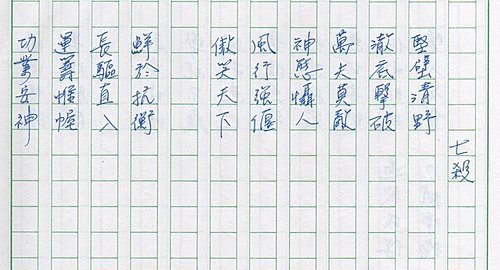 七殺
堅壁清野
澈底擊破
萬夫莫敵
神態懾人
風行強偃
傲笑天下
鮮於抗衡
長驅直入
運籌帷幄
功業岳神